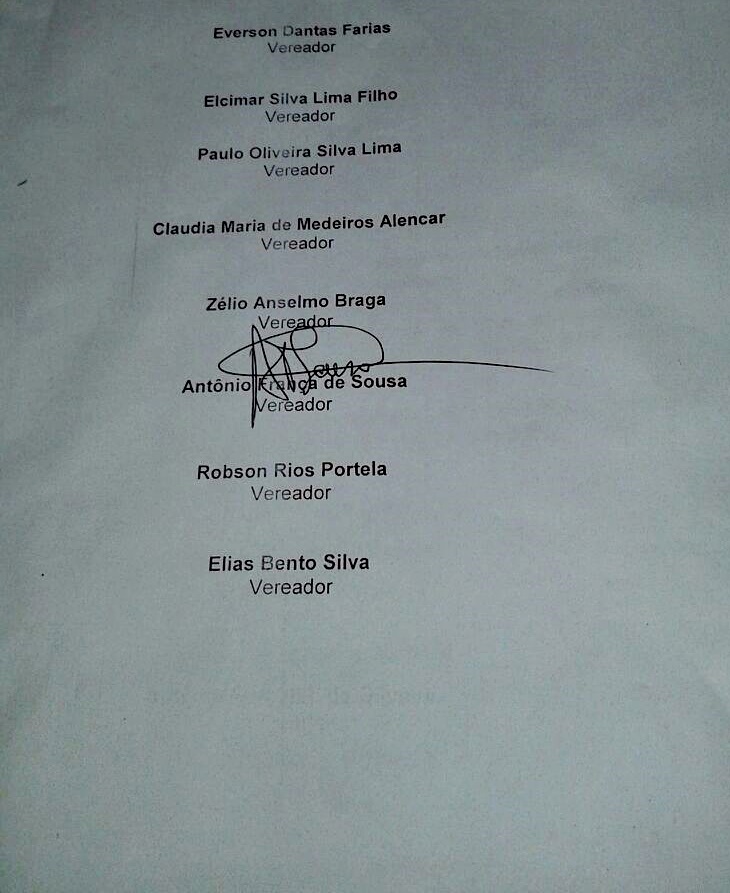 Everson Dantas Farias
Vereador
Elcimar Silva Lima Filho
Vereador
Paulo Oliveira Silva Lima
Vereador
Claudia Maria de Medeiros Alencar
Vereador
Zélio Anselmo Braga
Vereador
Antônio França de Sousa
Vereador
Robson Rios Portela
Vereador
Elias Bento Silva
Vereador